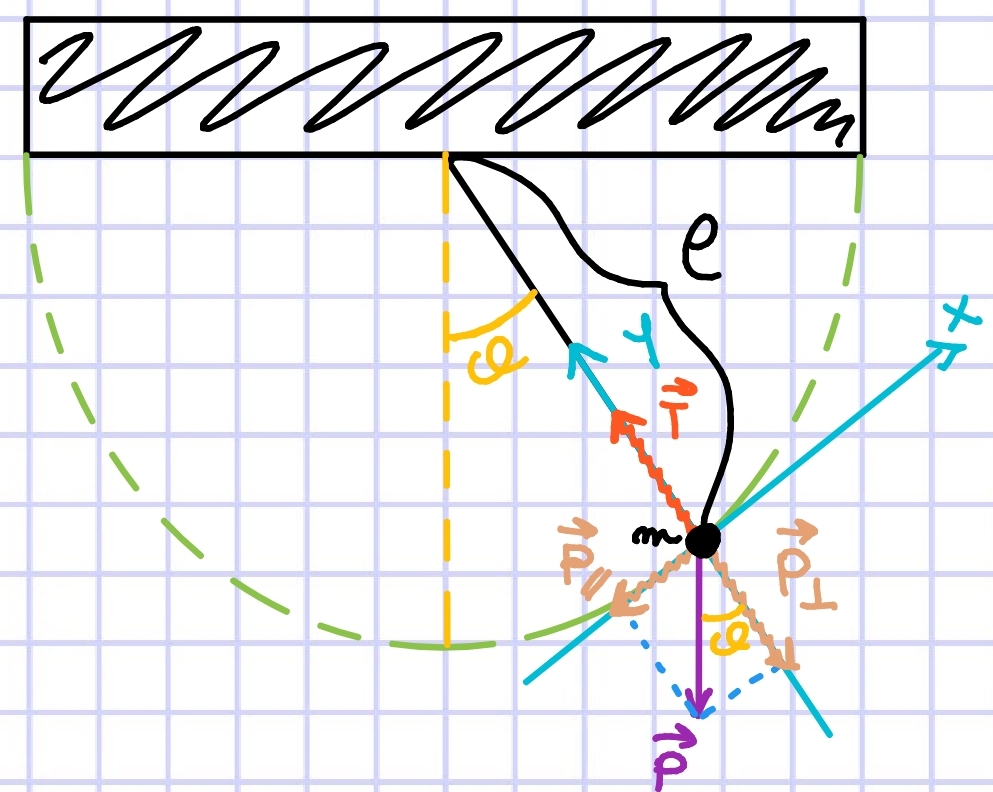 l
x
y
θ
T⃗
m
P⃗∥
P⃗⊥
θ
P⃗